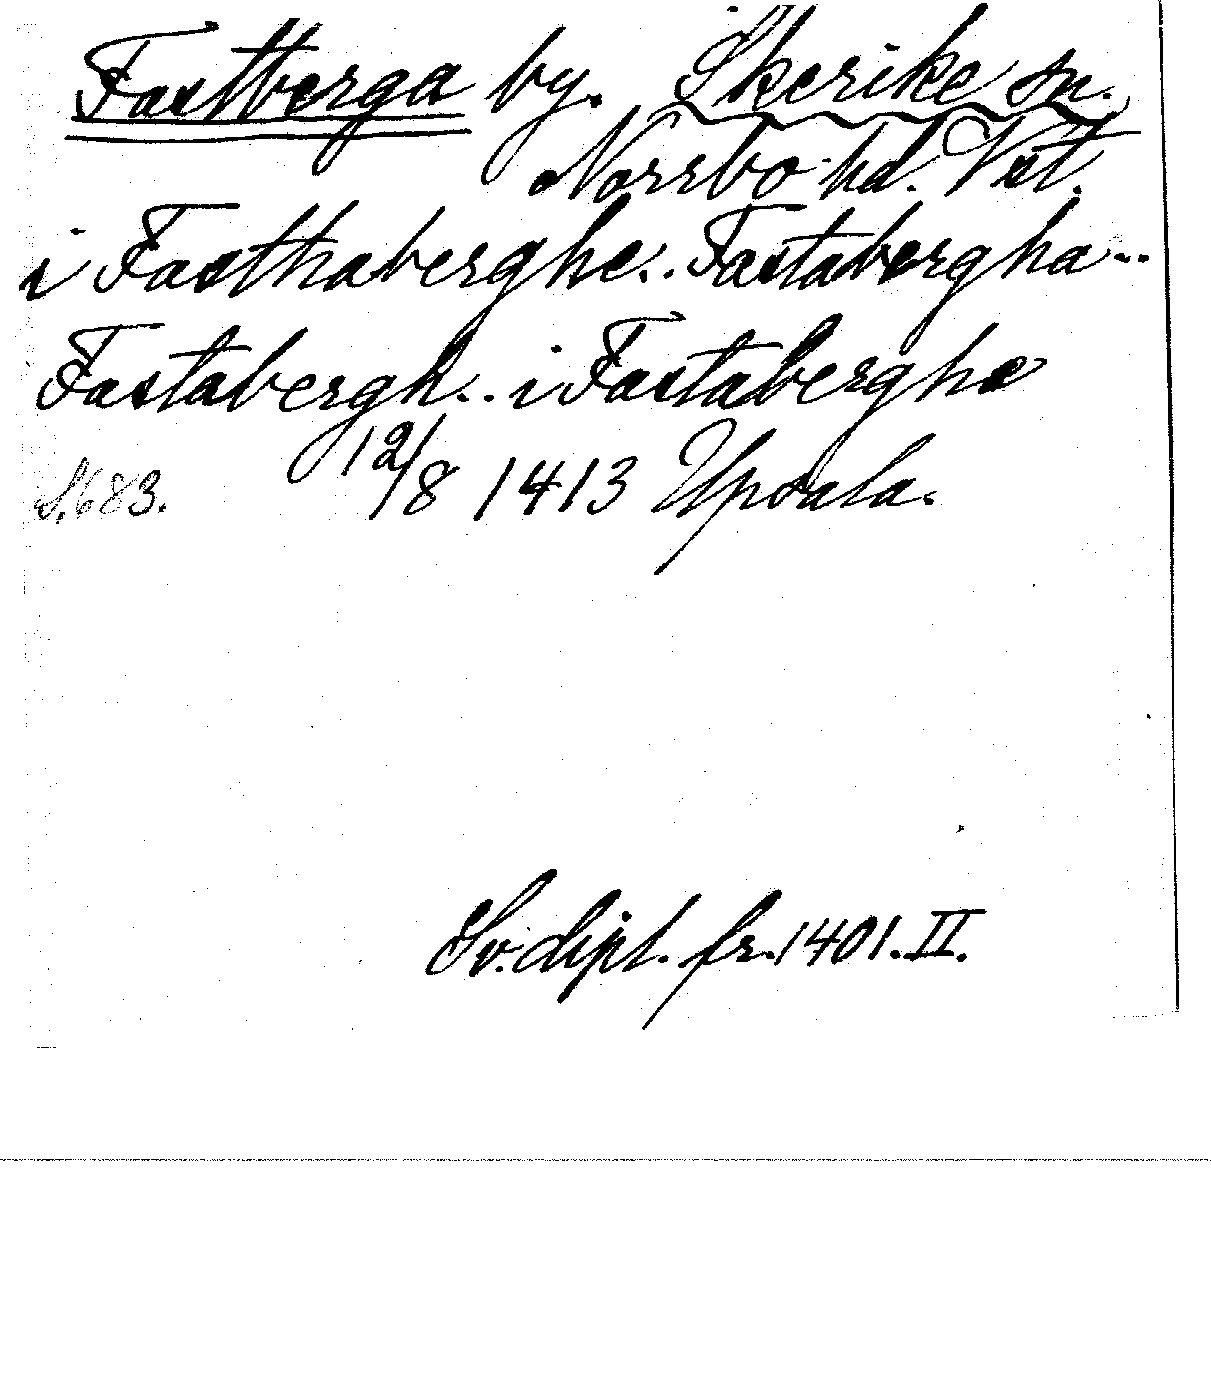 Fastberga by. Skerike sn.
Norrbo hd. Vstl.
i Fasthaberghe.. Fastabergha...
Fastabergh.. i Fastaberghæ
12/8 1413 Upsala.
S. 683.
Sv. dipl. fr. 1401. II.